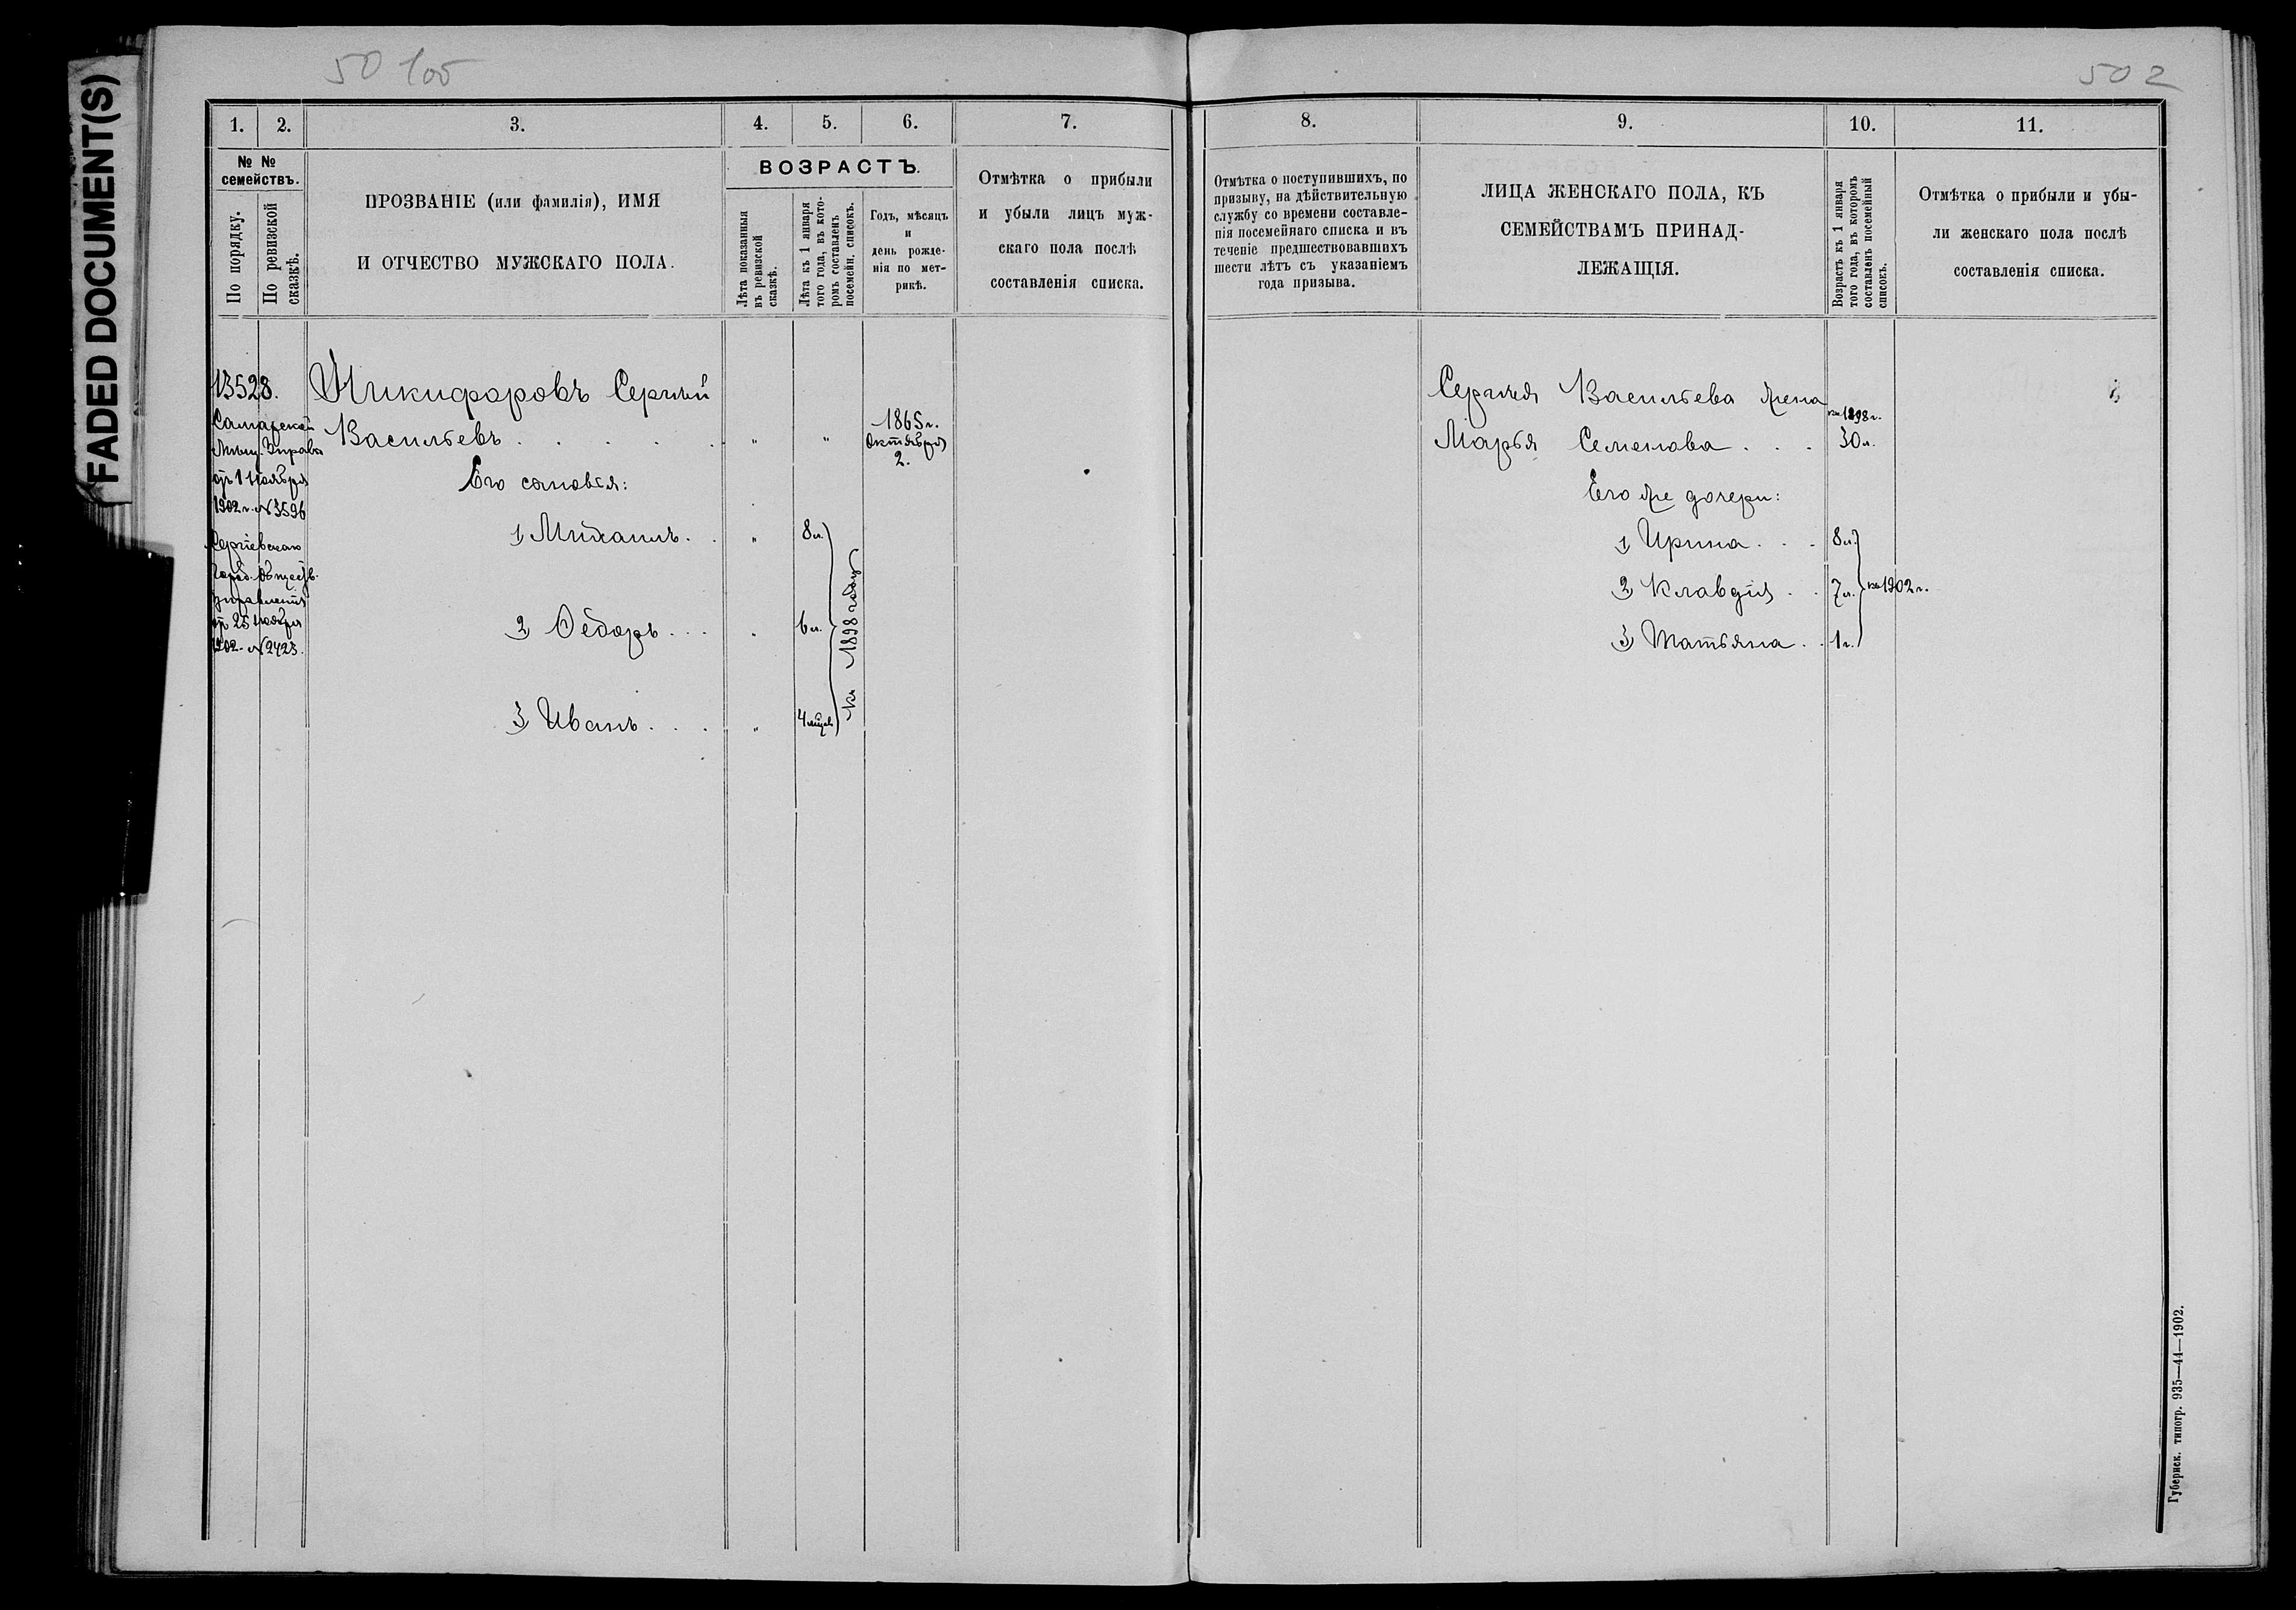 FADED DOCUMENT(S)
50 105
1. 2. 3. 4. 5. 6. 7.
№ №
семействъ.
По порядку.
По ревизской
сказкѣ.
ПРОЗВАНІЕ (или фамилія), ИМЯ
И ОТЧЕСТВО МУЖСКАГО ПОЛА.
ВОЗРАСТЪ.
Лѣта показанныя
въ ревизской
сказкѣ.
Лѣта къ 1 января
того года, въ кото-
ромъ составленъ
посемейн. списокъ.
Годъ, мѣсяцъ
и
день рожде-
нія по мет-
рикѣ.
Отмѣтка о прибыли
и убыли лицъ муж-
скаго пола послѣ
составленія списка.
13528.
Самарской
Мѣщ. Управы
отъ 1 Ноября
1902 г. № 3596
Сергіевскаго
Город. Обществ.
Управленія
от 25 Ноября
1902 - № 2423.
Никифоровъ Сергѣй
Васильевъ . . . . . " " 1865 г.
Октября
2.
Его сыновья:
1) Михаилъ. . " 8 л.
2) Ѳедоръ . . . " 6 л.
3) Иванъ . . . " 4 мѣсяц.
къ 1898 году
502
8. 9. 10. 11.
Отмѣтка о поступившихъ, по
призыву, на дѣйствительную
службу со времени составле-
нія посемейнаго списка и въ
теченіе предшествовавшихъ
шести лѣтъ съ указаніемъ
года призыва.
ЛИЦА ЖЕНСКАГО ПОЛА, КЪ
СЕМЕЙСТВАМЪ ПРИНАД-
ЛЕЖАЩІЯ.
Возрастъ къ 1 января
того года, въ которомъ
составленъ посемейный
списокъ.
Отмѣтка о прибыли и убы-
ли женскаго пола послѣ
составленія списка.
Сергѣя Васильева жена
къ 1898 г.
Марья Семенова . . . 30 л.
Его же дочери:
1) Ирина . . . 8 л.
2) Клавдія . . 7 л. къ 1902 г.
3) Татьяна . . 1 г.
Губернск. типогр. 935—44—1902.